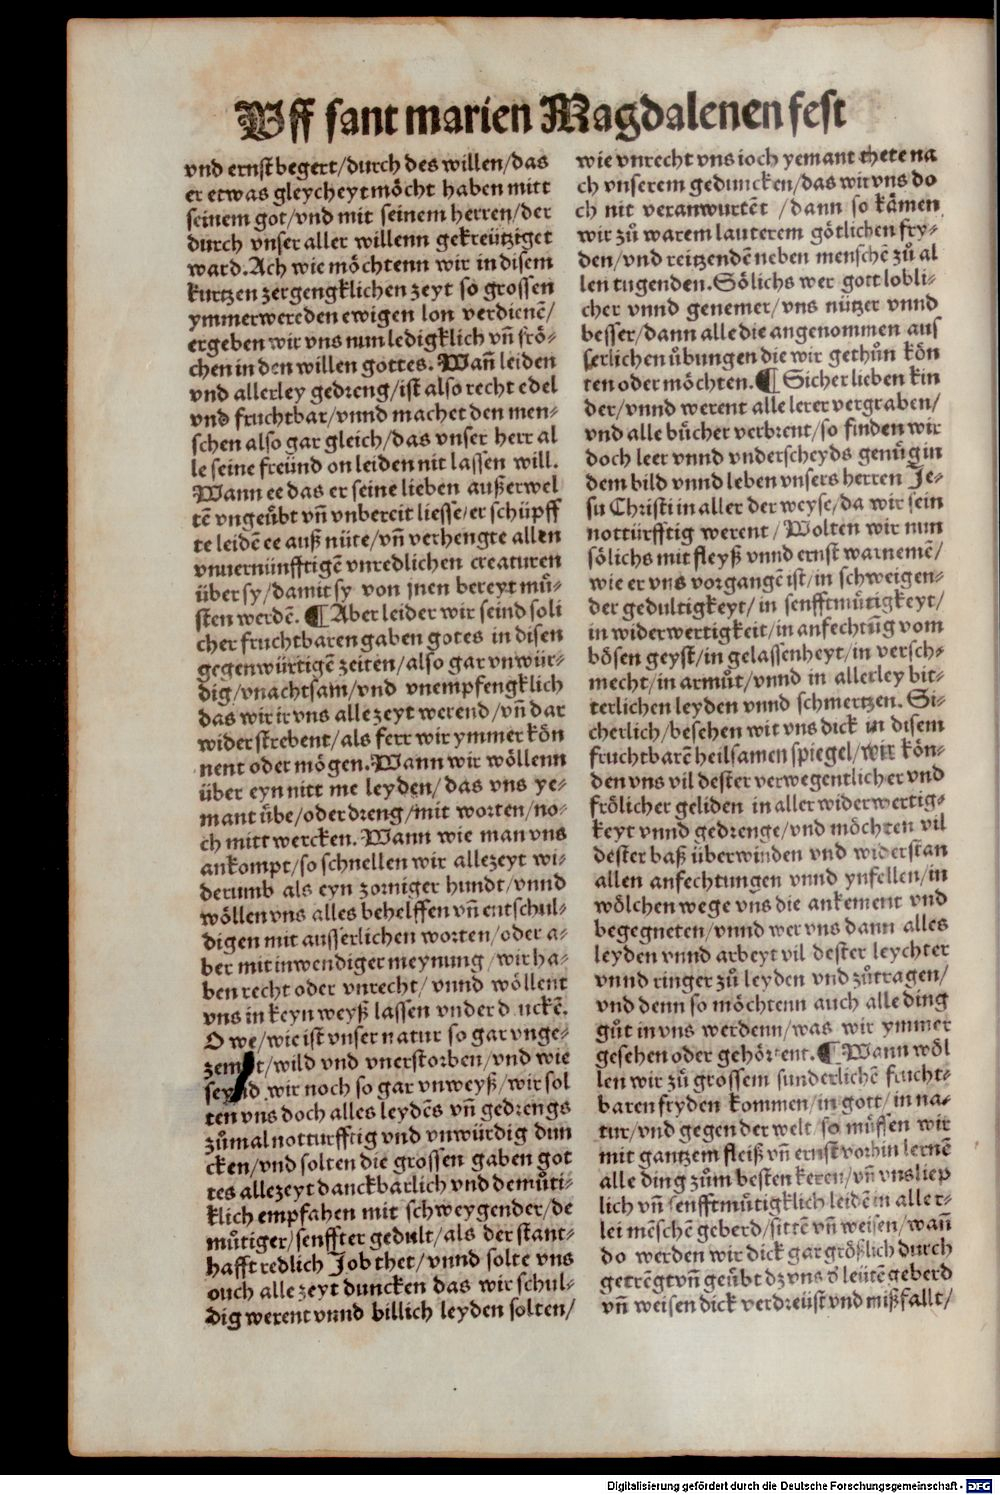 Uff sant marien Magdalenen fest
vnd ernst begert/durch des willen/das
er etwas gleycheyt möcht haben mitt
seinem got/vnd mit seinem herren/der
durch vnser aller willenn gekreütziget
ward. Ach wie möchtenn wir in disem
kurtzen zergengklichen zeyt so grossen
ymmerwereden ewigen lon verdienē/
ergeben wir vns nun ledigklich vn̄ frö⸗
chen in den willen gottes. Wan̄ leiden
vnd allerley gedreng/ist also recht edel
vnd fruchtbar/vnnd machet den men⸗
schen also gar gleich/das vnser herr al
le seine freünd on leiden nit lassen will.
Wann ee das er seine lieben außerwel
tē vngeübt vn̄ vnbereit liesse/er schüpff
te leidē ee auß nüte/vn̄ verhengte allen
vnuernünfftigē vnredlichen creaturen
über sy/damit sy von jnen bereyt mů⸗
sten werdē. ¶ Aber leider wir seind soli
cher fruchtbaren gaben gotes in disen
gegenwürtigē zeiten/also gar vnwür⸗
dig/vnachtsam/vnd vnempfengklich
das wir ir vns alle zeyt werend/vn̄ dar
wider strebent/als ferr wir ymmer kön
nent oder mögen. Wann wir wöllenn
über eyn nitt me leyden/das vns ye⸗
mant übe/oder dreng/mit worten/no⸗
ch mitt wercken. Wann wie man vns
ankompt/so schnellen wir allezeyt wi⸗
derumb als eyn zorniger hundt/vnnd
wöllen vns alles behelffen vn̄ entschul⸗
digen mit ausserlichen worten/oder a⸗
ber mit inwendiger meynung/wir ha⸗
ben recht oder vnrecht/vnnd wöllent
vns in keyn weyß lassen vnder d uckē.
O we/wie ist vnser natur so gar vnge⸗
zem t/wild vnd vnerstorben/vnd wie
sey d wir noch so gar vnweyß/wir sol
ten vns doch alles leydēs vn̄ gedrengs
zůmal notturfftig vnd vnwürdig dun
cken/vnd solten die grossen gaben got
tes allezeyt danckbarlich vnd demůti⸗
klich empfahen mit schweygender/de
můtiger/senffter gedult/als der stant⸗
hafft redlich Job thet/vnnd solte vns
ouch alle zeyt duncken das wir schul⸗
dig werent vnnd billich leyden solten/
wie vnrecht vns ioch yemant thete na
ch vnserem geduncken/das wir vns do
ch nit veranwurtēt /dann so kämen
wir zů warem lauterem götlichen fry⸗
den/vnd reitzendē neben menschē zů al
len tugenden. Sölichs wer gott lobli⸗
cher vnnd genemer/vns nützer vnnd
besser/dann alle die angenommen aus
serlichen übungen die wir gethůn kön
ten oder möchten. ¶ Sicher lieben kin
der/vnnd werent alle lerer vergraben/
vnd alle bücher verbrent/so finden wir
doch leer vnnd vnderscheyds genůg in
dem bild vnnd leben vnsers herren Je⸗
su Christi in aller der weyse/da wir sein
nottürfftig werent/Wolten wir nun
sölichs mit fleyß vnnd ernst warnemē/
wie er vns vorgangē ist/in schweigen⸗
der gedultigkeyt/in senfftmůtigkeyt/
in widerwertigkeit/in anfechtūg vom
bösen geyst/in gelassenheyt/in versch⸗
mecht/in armůt/vnnd in allerley bit⸗
terlichen leyden vnnd schmertzen. Si⸗
cherlich/besehen wir vns dick in disem
fruchtbarē heilsamen spiegel/wir kön⸗
den vns vil dester verwegentlicher vnd
frölicher geliden in aller widerwertig⸗
keyt vnnd gedrenge/vnd möchten vil
dester baß überwinden vnd widerstan
allen anfechtungen vnnd ynfellen/in
wölchen wege vns die ankement vnd
begegneten/vnnd wer vns dann alles
leyden vnnd arbeyt vil dester leychter
vnnd ringer zů leyden vnd zůtragen/
vnd denn so möchtenn auch alle ding
gůt in vns werdenn/was wir ymmer
gesehen oder gehörtent. ¶ Wann wöl
len wir zů grossem sunderlichē frucht⸗
baren fryden kommen/in gott/in na⸗
tur/vnd gegen der welt/so müssen wir
mit gantzem fleiß vn̄ ernst vorhin lernē
alle ding zům besten keren/vn̄ vns liep
lich vn̄ senfftmůtigklich leidē in aller⸗
lei mēschē geberd/sittē vn̄ weisen/wan̄
do werden wir dick gar größlich durch
getrēgt vn̄ geübt dz vns d̕ leütē geberd
vn̄ weisen dick verdreüst vnd mißfallt/
Digitalisierung gefördert durch die Deutsche Forschungsgemeinschaft - DFG